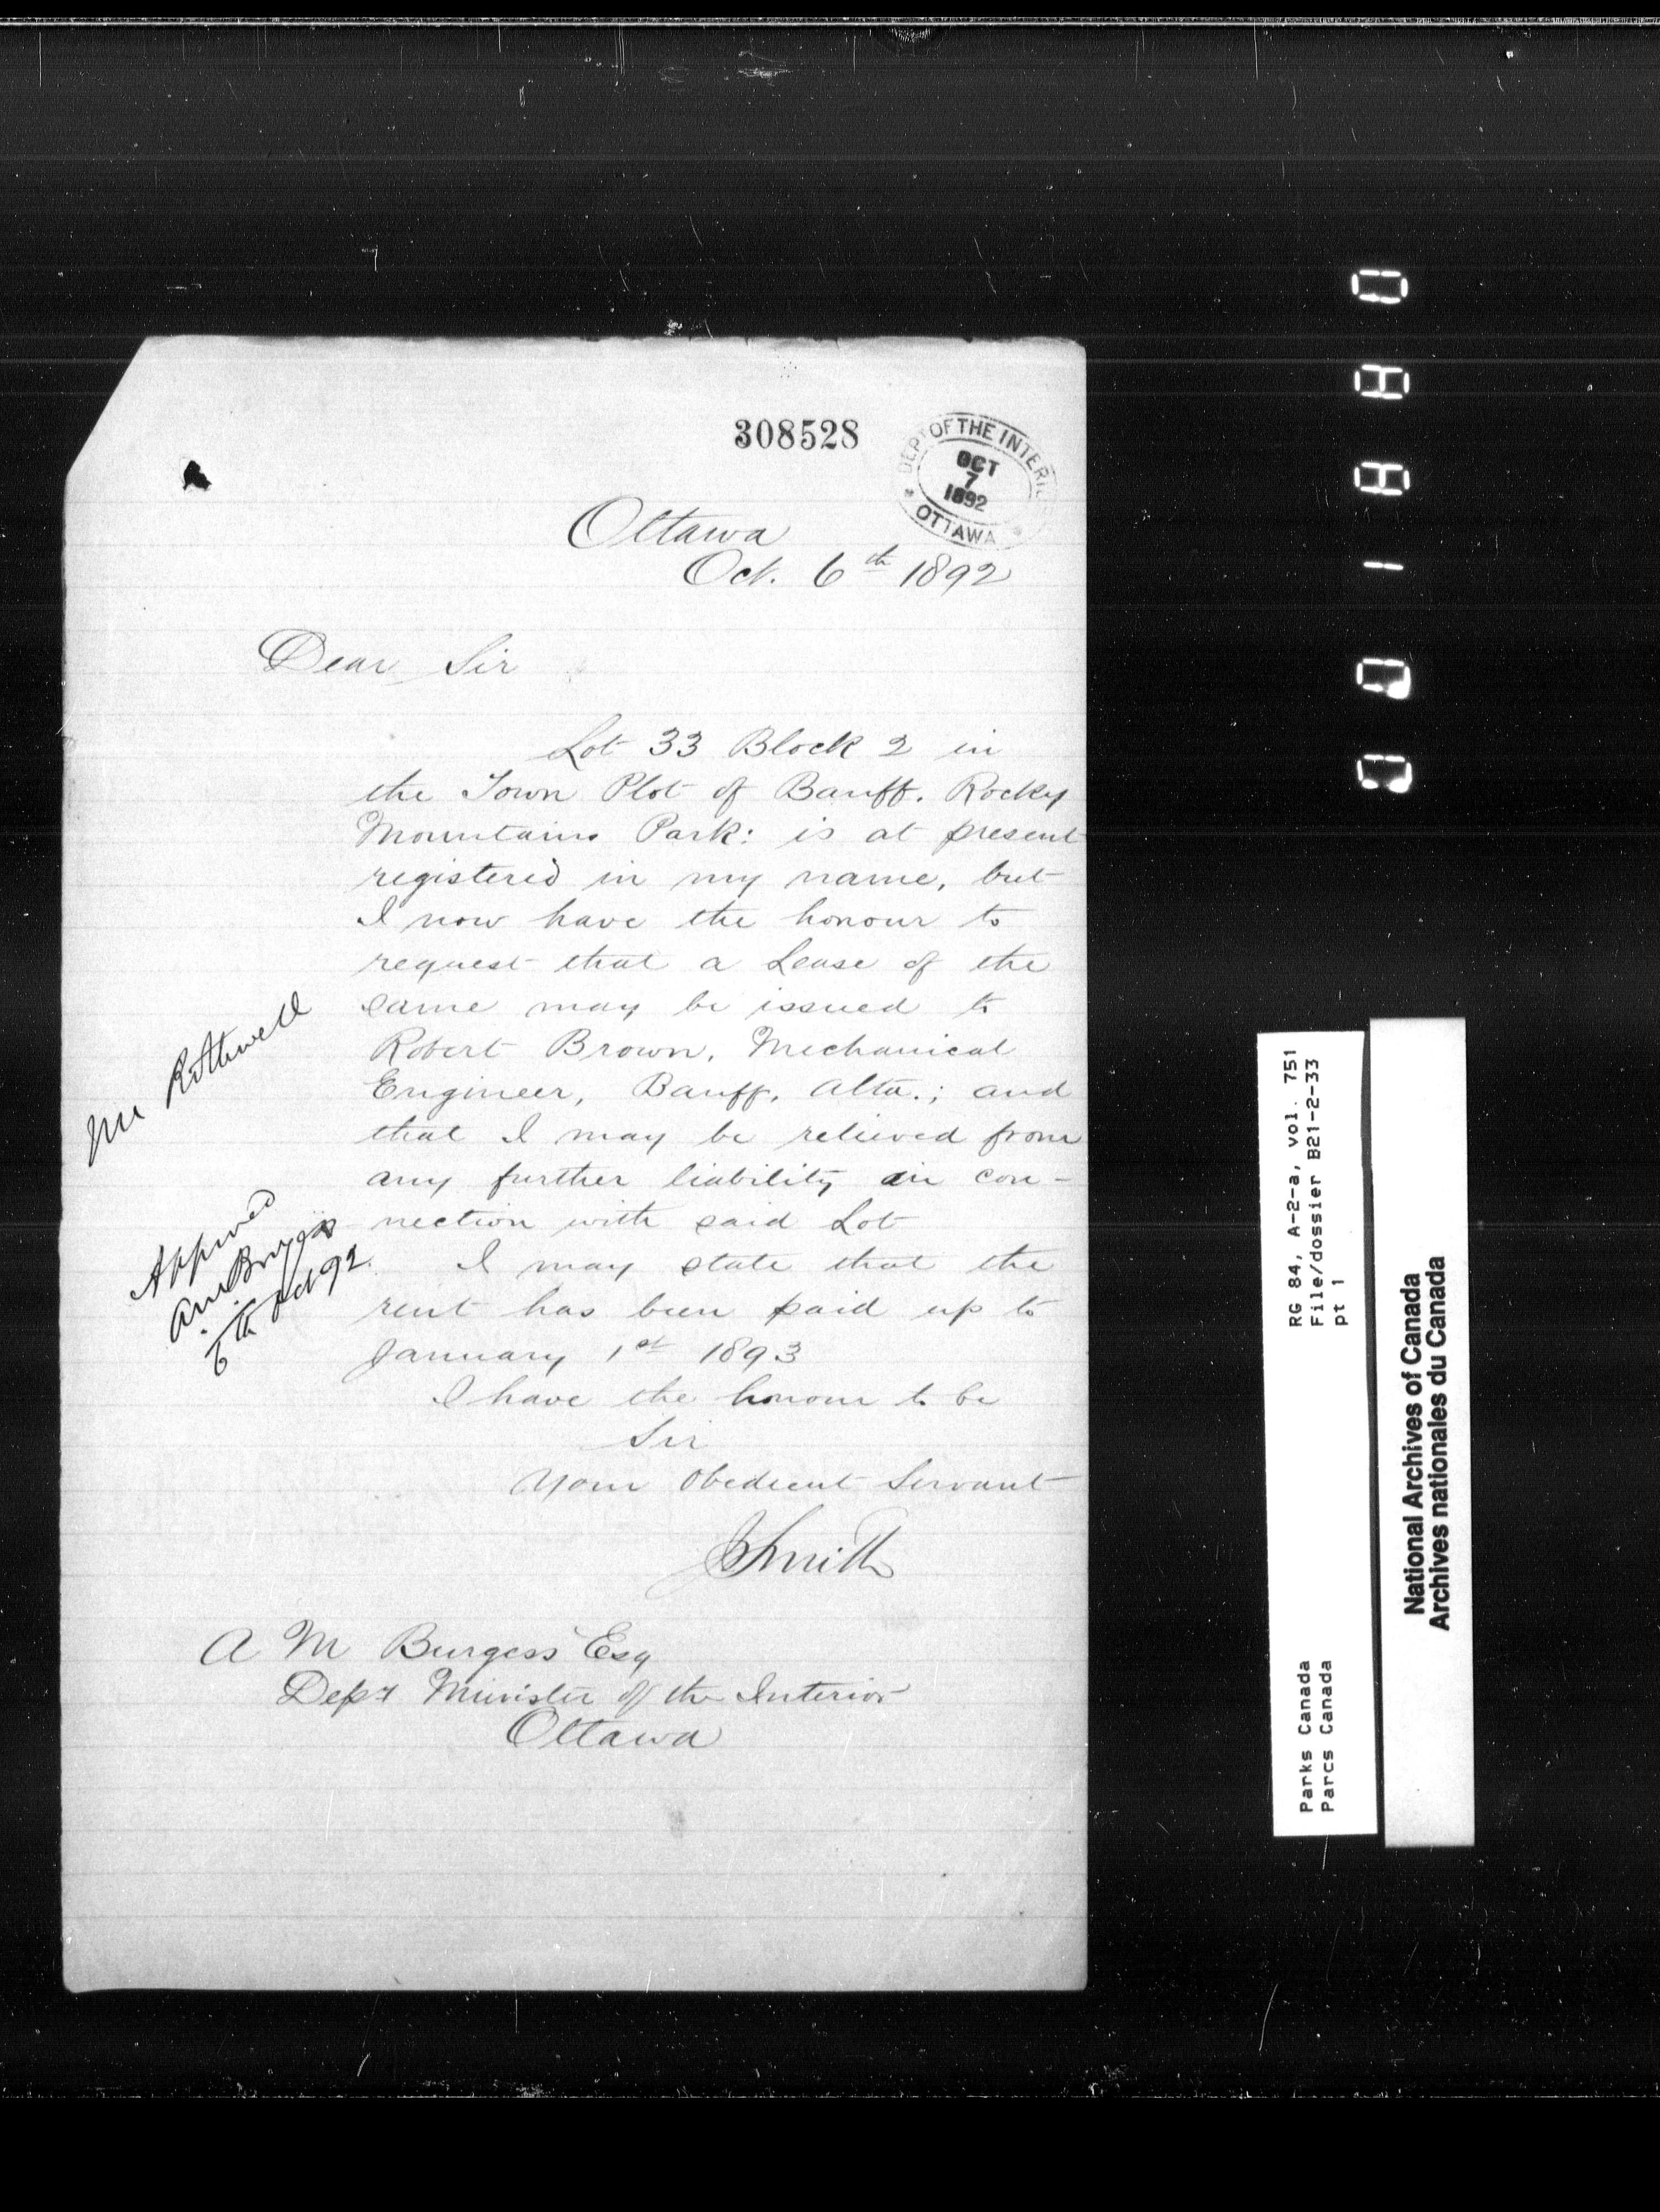 308528
DEPT OF THE INTERIOR
OCT
7
1892
OTTAWA
Ottawa
Oct. 6th 1892
Dear Sir
Lot 33 Block 2 in
the Town Plot of Banff. Rocky
Mountains Park: is at present
registered in my name, but
I now have the honour to
request that a Lease of the
same may be issued to
Robert Brown, Mechanical
Engineer, Banff, Alta.; and
that I may be relieved from
any further liability in con-
nection with said Lot
I may state that the
rent has been paid up to
January 1st 1893
I have the honour to be
Sir
Your Obedient Servant
JSmith
A M Burgess Esq
Depy Minister of the Interior
Ottawa
Mr Rothwell
Approved
AMBurgess
6th Oct 92.
RG 84, A-2-a, vol. 751
File/dossier B21-2-33
pt 1
Parks Canada
Parcs Canada
National Archives of Canada
Archives nationales du Canada